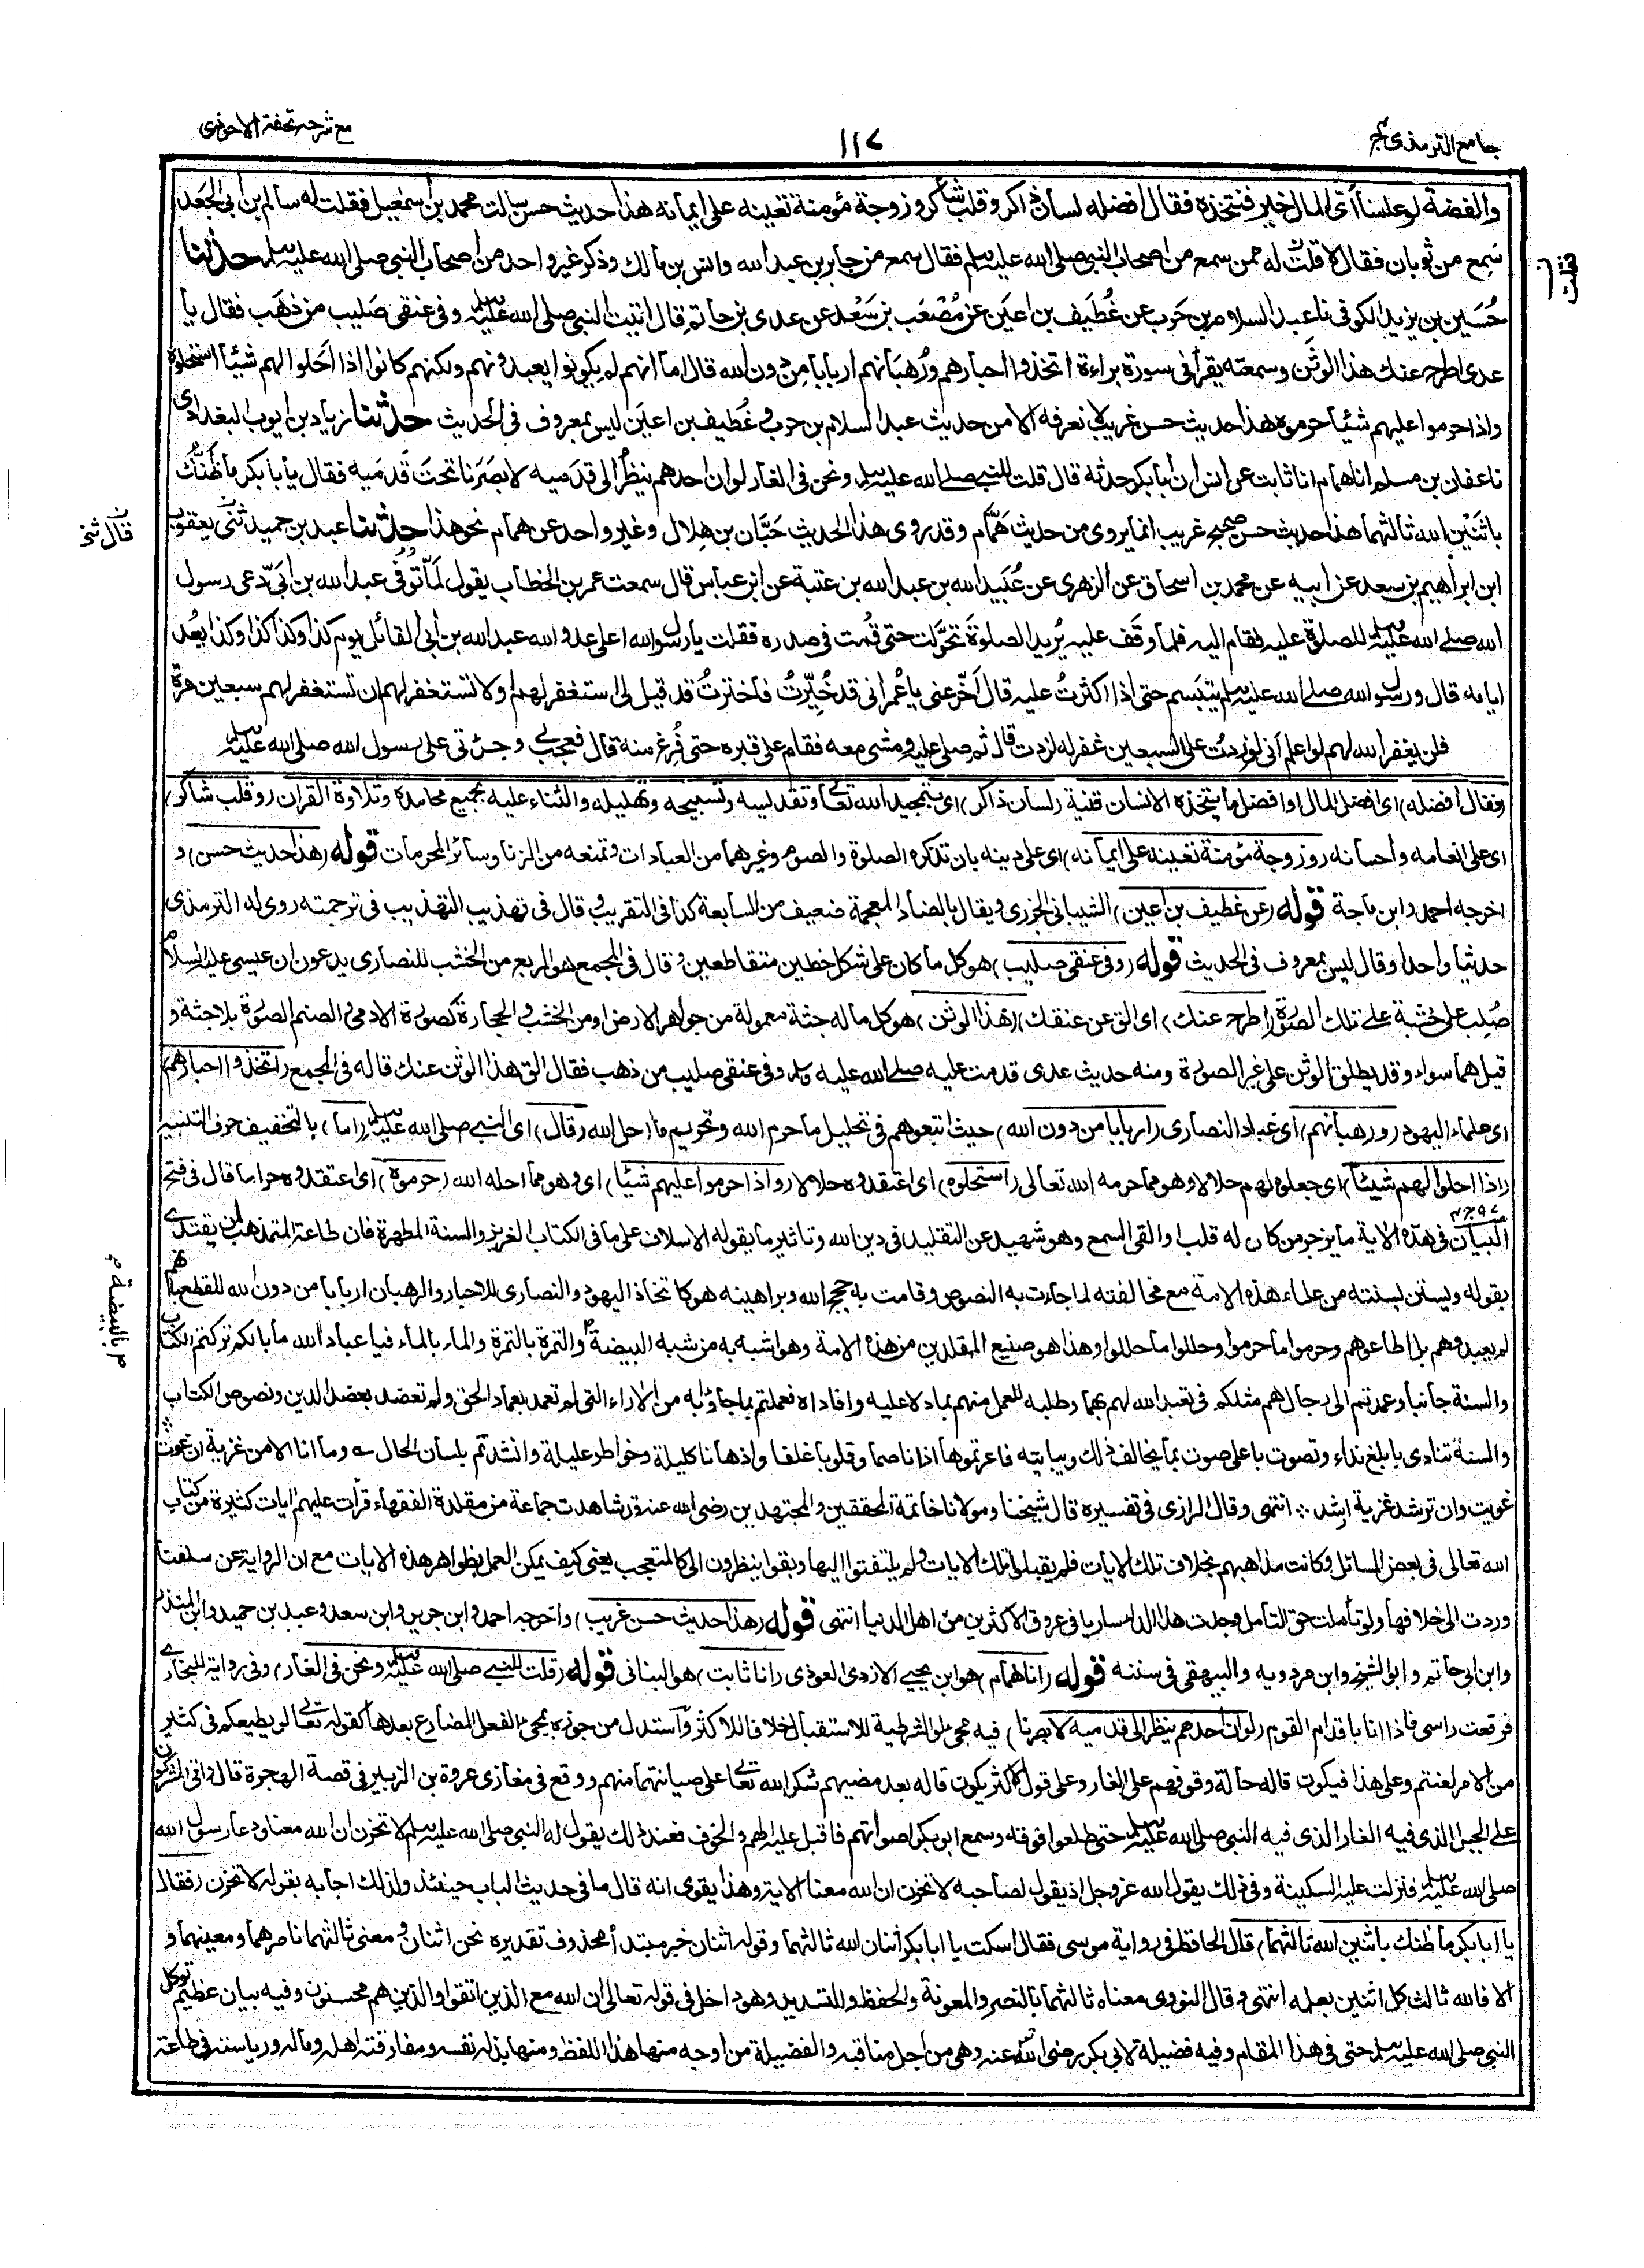 جامع الترمذی ج۴
۱۱۷
مع شرحه تحفة الاحوذی
والفضة لو علمنا أىّ المال خير فنتخذه فقال افضله لسان ذاكر وقلب شاكر وزوجة مؤمنة تعينه على ايمانه هذا حديث حسن سالت محمد بن اسمعيل فقلت له سالم بن ابى الجَعد
سَمِع من ثوبان فقال لا قلت له ممن سمع من اصحاب النبى صلى الله عليه وسلم فقال سمع من جابر بن عبد الله وانس بن مالك وذكر غير واحد من اصحاب النبى صلى الله عليه وسلم حدثنا
حُسَين بن يزيد الكوفى نا عبد السلام بن حَرب عن غُطَيف بن اعيَن عن مُصْعَب بن سَعْد عن عدى بن حاتم قال اتيت النبى صلى الله عليه وسلم وفى عنقى صَليب من ذهَب فقال يا
عدى اطرح عنك هذا الوثَن وسمعته يقرأ فى سورة براءة اتخذوا احبارهم ورُهبَانهم اربابا من دون الله قال اما انهم لم يكونوا يعبدونهم ولكنهم كانوا اذا اَحَلوا لهم شيئا استحلوه
واذا حرموا عليهم شيئا حرموه هذا حديث حسن غريب لا نعرفه الا من حديث عبد السلام بن حرب وغُطيف بن اعيَن ليس بمعروف فى الحديث حدثنا زياد بن ايوب البغدادى
نا عفان بن مسلم انا همام انا ثابت عن انس ان أبا بكر حدثه قال قلت للنبى صلى الله عليه وسلم ونحن فى الغار لو ان احدهم ينظُر الى قدَميه لابصَرَنا تحتَ قَدمَيه فقال يا أبا بكر ما ظَنُّكَ
باثنَيْن الله ثالثهما هذا حديث حسن صحيح غريب انما يروى من حديث همّام وقد روى هذا الحديث حَبَّان بن هِلال وغير واحد عن همام نحو هذا حدثنا عبد بن حميد ثنى يعقوب
ابن ابراهيم بن سعد عن ابيه عن محمد بن اسحاق عن الزهرى عن عُبَيد الله بن عبد الله بن عتبة عن ابن عباس قال سمعت عمر بن الخطاب يقول لمّا تُوُفّى عبد الله بن اُبَىّ دعى رسول
الله صلى الله عليه وسلم للصلوة عليه فقام اليه فلما وقَف عليه يُريد الصلوة تحوّلت حتى قُمت فى صدره فقلت يا رسول الله اعلى عدو الله عبد الله بن ابى القائل يوم كذا وكذا كذا وكذا يعُد
ايامه قال ورسول الله صلى الله عليه وسلم يتبَسم حتى اذا اكثرتُ عليه قال أَخّر عنى يا عُمر انى قد خُيِّرتُ فاخترتُ قد قيل لى استغفر لهم او لا تستغفر لهم ان تستغفر لهم سبعين مرة
فلن يغفر الله لهم لو اعلم انى لو زدتُ على السبعين غفر له لزدت قال ثم صلى عليه ومشى معه فقام على قبره حتى فُرِغ منه قال فعجب لى وجرئتى على رسول الله صلى الله عليه وسلم
(فقال افضله) اى افضل المال او افضل ما يتخذه الانسان قنية (لسان ذاكر) اى بتمجيد الله تعالى وتقديسه وتسبيحه وتهليله والثناء عليه بجميع محامده وتلاوة القران (وقلب شاكر)
اى على انعامه واحسانه (وزوجة مؤمنة تعينه على ايمانه) اى على دينه بان تذكره الصلوة والصوم وغيرهما من العبادات وتمنعه من الزنا وسائر المحرمات قوله (هذا حديث حسن) و
اخرجه احمد وابن ماجة قوله (عن غطيف بن اعين) الشيبانى الجزرى ويقال بالضاد المعجمة ضعيف من السابعة كذا فى التقريب وقال فى تهذيب التهذيب فى ترجمته روى له الترمذى
حديثا واحدا وقال ليس بمعروف فى الحديث قوله (وفى عنقى صليب) هو كل ما كان على شكل خطين متقاطعين وقال فى المجمع هو المربع من الخشب للنصارى يدعون ان عيسى عليه السلام
صُلِب على خشبة على تلك الصورة (اطرح عنك) اى الق عن عنقك (هذا الوثن) هو كل ما له جثة معمولة من جواهر الارض او من الخشب والحجارة كصورة الادمى والصنم الصورة بلا جثة و
قيل هما سواء وقد يطلق الوثن على غير الصورة ومنه حديث عدى قدمت عليه صلى الله عليه وسلم وفى عنقى صليب من ذهب فقال الق هذا الوثن عنك قاله فى المجمع (اتخذوا احبارهم)
اى علماء اليهود (ورهبانهم) اى عباد النصارى (اربابا من دون الله) حيث اتبعوهم فى تحليل ما حرم الله وتحريم ما احل الله (قال) اى النبى صلى الله عليه وسلم (اما) بالتخفيف حرف التنبيه
(اذا احلوا لهم شيئا) اى جعلوه لهم حلالا وهو مما حرمه الله تعالى (استحلوه) اى اعتقدوه حلالا (واذا حرموا عليهم شيئا) اى وهو مما احله الله (حرموه) اى اعتقدوه حراما قال فى فتح
البيان فى هذه الاية ما يزجر من كان له قلب او القى السمع وهو شهيد عن التقليد فى دين الله وتاثير ما يقوله الاسلاف على ما فى الكتاب العزيز والسنة المطهرة فان طاعة المتمذهب لمن يقتدى
بقوله ويستن بسنته من علماء هذه الامة مع مخالفته لما جاءت به النصوص وقامت به حجج الله وبراهينه هو كاتخاذ اليهود والنصارى للاحبار والرهبان اربابا من دون الله للقطع بانهم
لم يعبدوهم بل اطاعوهم وحرموا ما حرموا وحللوا ما حللوا وهذا هو صنيع المقلدين من هذه الامة وهو اشبه به من شبه البيضة والتمرة بالتمرة والماء بالماء فيا عباد الله ما بالكم تركتم الكتاب
والسنة جانبا وعمدتم الى رجال هم مثلكم فى تعبد الله لهم بهما وطلبه للعمل منهم بما دلا عليه وافاداه فعملتم بما جاؤا به من الاراء التى لم تعمد بعماد الحق ولم تعضد بعضد الدين ونصوص الكتاب
والسنة تنادى بابلغ نداء وتصوت باعلى صوت بما يخالف ذلك ويباينه فاعرتموها اذانا صما وقلوبا غلفا واذهانا كليلة وخواطر عليلة وانشدتم بلسان الحال وما انا الا من غزية ان غوت
غويت وان ترشد غزية ارشد ؞ انتهى وقال الرازى فى تفسيره قال شيخنا ومولانا خاتمة المحققين والمجتهدين رضى الله عنه قد شاهدت جماعة من مقلدة الفقهاء قرأت عليهم ايات كثيرة من كتاب
الله تعالى فى بعض المسائل وكانت مذاهبهم بخلاف تلك الايات فلم يقبلوا تلك الايات ولم يلتفتوا اليها وبقوا ينظرون الى كالمتعجب يعنى كيف يمكن العمل بظواهر هذه الايات مع ان الرواية عن سلفنا
وردت الى خلافها ولو تأملت حق التأمل وجدت هذا الداء ساريا فى عروق الاكثرين من اهل الدنيا انتهى قوله (هذا حديث حسن غريب) واخرجه احمد وابن جرير وابن سعد وعبد بن حميد وابن المنذر
وابن ابى حاتم وابو الشيخ وابن مردويه والبيهقى فى سننه قوله (انا همام) هو ابن يحيى الازدى العوذى (انا ثابت) هو البنانى قوله (قلت للنبى صلى الله عليه وسلم ونحن فى الغار) وفى رواية للبخارى
فرفعت راسى فاذا انا باقدام القوم (لو ان احدهم ينظر الى قدميه لابصرنا) فيه مجىء لو الشرطية للاستقبال خلافا للاكثر واستدل من جوزه بمجىء الفعل المضارع بعدها كقوله تعالى لو يطيعكم فى كثير
من الامر لعنتم وعلى هذا فيكون قاله حالة وقوفهم على الغار وعلى قول الاكثر يكون قاله بعد مضيهم شكرا لله تعالى على صيانتهما منهم ووقع فى مغازى عروة بن الزبير فى قصة الهجرة قال واتى المشركون
على الجبل الذى فيه الغار الذى فيه النبى صلى الله عليه وسلم حتى طلعوا فوقه وسمع ابو بكر اصواتهم فاقبل عليه الهم والخوف فعند ذلك يقول له النبى صلى الله عليه وسلم لا تحزن ان الله معنا ودعا رسول الله
صلى الله عليه وسلم فنزلت عليه السكينة وفى ذلك يقول الله عز وجل اذ يقول لصاحبه لا تحزن ان الله معنا الاية وهذا يقوى انه قال ما فى حديث الباب حينئذ ولذلك اجابه بقوله لا تحزن (فقال
يا ابا بكر ما ظنك باثنين الله ثالثهما) قال الحافظ فى رواية موسى فقال اسكت يا ابا بكر اثنان الله ثالثهما وقوله اثنان خبر مبتدأ محذوف تقديره نحن اثنان ومعنى ثالثهما ناصرهما ومعينهما و
الا فالله ثالث كل اثنين بعلمه انتهى وقال النووى معناه ثالثهما بالنصر والمعونة والحفظ والتسديد وهو داخل فى قوله تعالى ان الله مع الذين اتقوا والذين هم محسنون وفيه بيان عظيم توكل
النبى صلى الله عليه وسلم حتى فى هذا المقام وفيه فضيلة لابى بكر رضى الله عنه وهى من اجل مناقبه والفضيلة من اوجه منها هذا اللفظ ومنها بذله نفسه ومفارقته اهله وماله ورياسته فى طاعة
فقلت
قال ثنى
بالبيضة